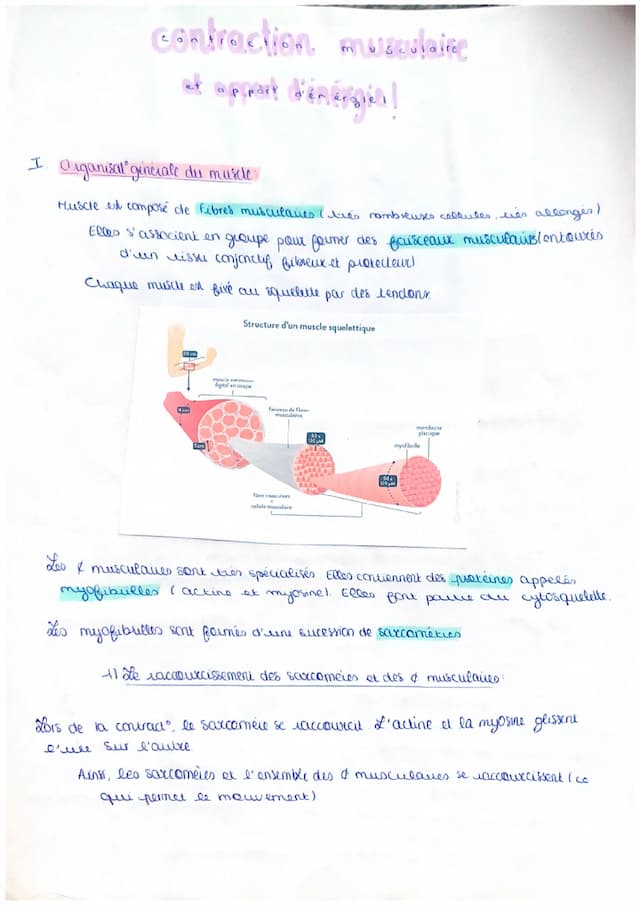 contraction musculaire
et apport d'énérgie!
I Organisat° générale du muscle:
Muscle est composé de fibres musculaires (très nombreuses cellules, très allongés)
Elles s'associent en groupe pour former des faisceaux musculaires (entourés
d'un tissu conjonctif, fibreux et protecteur)
Chaque muscle est fixé au squelette par des tendons.
Structure d'un muscle squelettique
muscle extenseur
digital en coupe
faisceau de fibres
musculaires
membrane
plasmique
myofibrille
fibre musculaire
=
cellule musculaire
Les ¢ musculaires sont très spécialisés. Elles contiennent des protéines appelés
myofibrilles (actine et myosine). Elles font partie du cytosquelette.
Les myofibrilles sont formés d'une sucession de sarcomères
1) Le raccourcissement des sarcomères et des ¢ musculaires:
Lors de la contract°, le sarcomère se raccourcit & l'actine et la myosine glissent
l'une sur l'autre
Ainsi, les sarcomères et l'ensemble des ¢ musculaires se raccourcissent (ce
qui permet le mouvement)